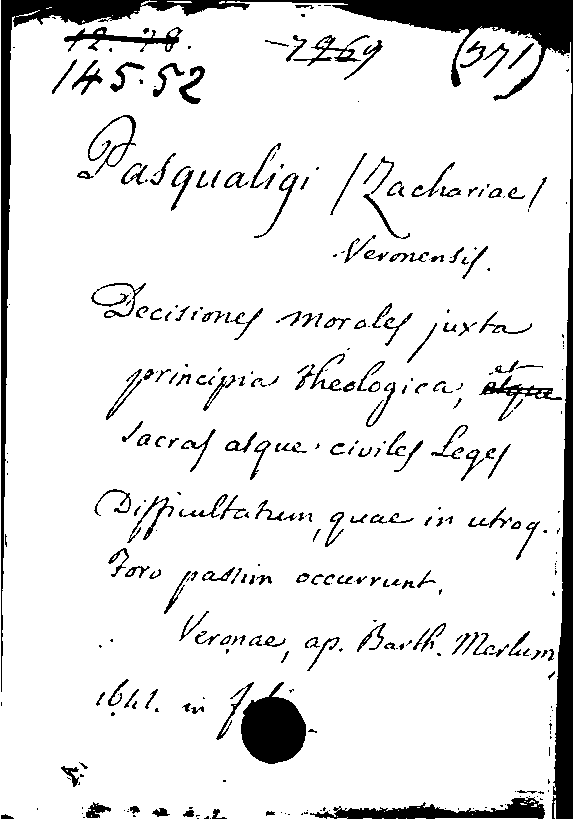 12.78. 7969 (371)
145.52
Pasqualigi /Zachariae/
Veronensis.
Decisiones morales juxta
principia theologica, et atque
sacras atque civiles Leges
Difficultatum, quae in utroq.
Foro passim occurrunt.
Veronae, ap. Barth. Merlum,
1641. in